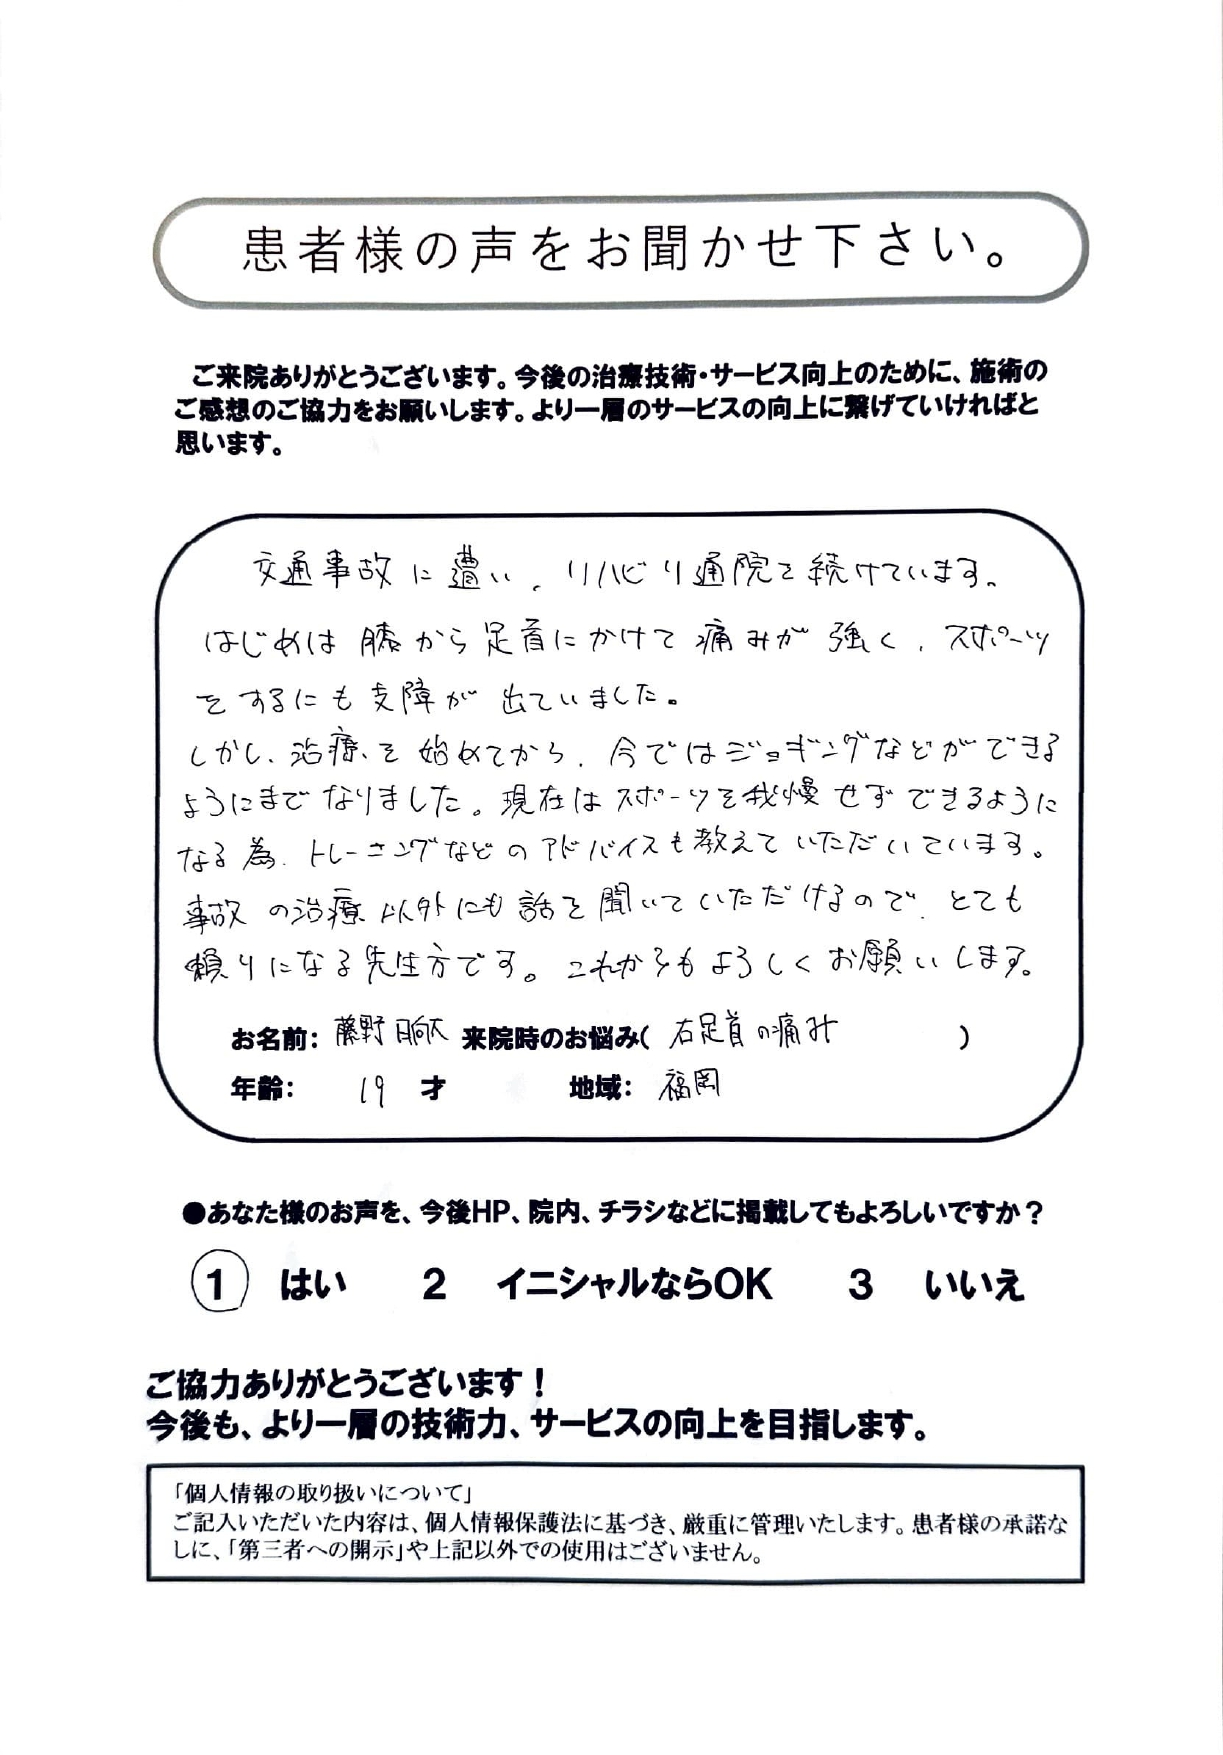 患者様の声をお聞かせ下さい。
ご来院ありがとうございます。今後の治療技術・サービス向上のために、施術の
ご感想のご協力をお願いします。より一層のサービスの向上に繋げていければと
思います。
交通事故に遭い、リハビリ通院を続けています。
はじめは膝から足首にかけて痛みが強く、スポーツ
をするにも支障が出ていました。
しかし、治療を始めてから、今ではジョギングなどができる
ようにまでなりました。現在はスポーツを我慢せずできるように
なる為、トレーニングなどのアドバイスも教えていただいています。
事故の治療以外にも話を聞いていただけるので、とても
頼りになる先生方です。これからもよろしくお願いします。
お名前: 藤野 来院時のお悩み( 右足首の痛み )
年齢: 19 才 地域: 福岡
●あなた様のお声を、今後HP、院内、チラシなどに掲載してもよろしいですか？
1 はい 2 イニシャルならOK 3 いいえ
ご協力ありがとうございます！
今後も、より一層の技術力、サービスの向上を目指します。
「個人情報の取り扱いについて」
ご記入いただいた内容は、個人情報保護法に基づき、厳重に管理いたします。患者様の承諾な
しに、「第三者への開示」や上記以外での使用はございません。